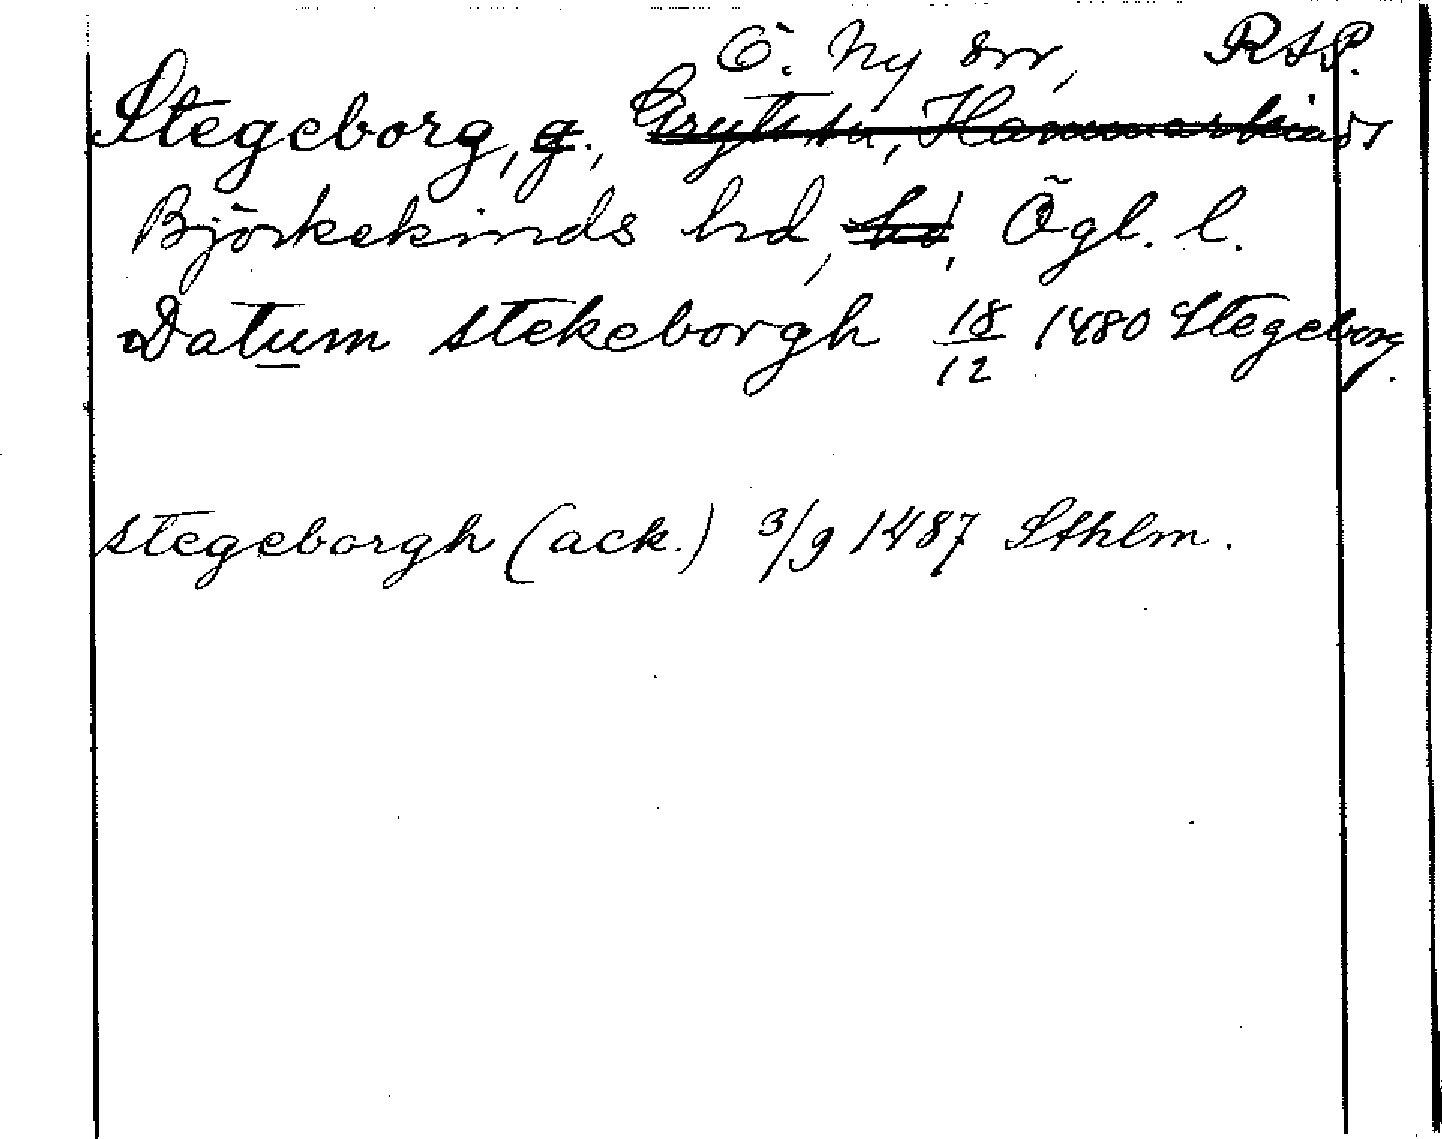 Ö. Ny srr, RAP.
Stegeborg, g., Gryts sn, Hammarkinds
Björkekinds hd, hd, Ögl. l.
Datum stekeborgh 18/12 1480 Stegeborg.
stegeborgh (ack.) 3/9 1487 Sthlm.